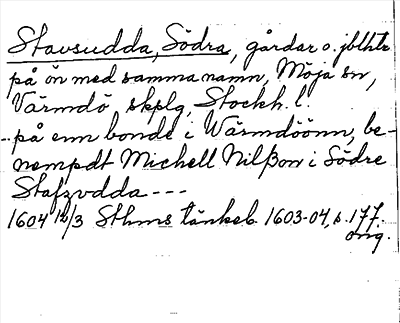 Stavsudda, Södra, gårdar o. jblhtr
på ön med samma namn, Möja sn,
Värmdö skplg, Stockh. l.
-- på enn bonde i Wärmdöönn, be-
nempdt Michell Nilßon i Södre
Stafzvdda ---
1604 12/3 Sthms tänkeb. 1603-04, s. 177.
orig.